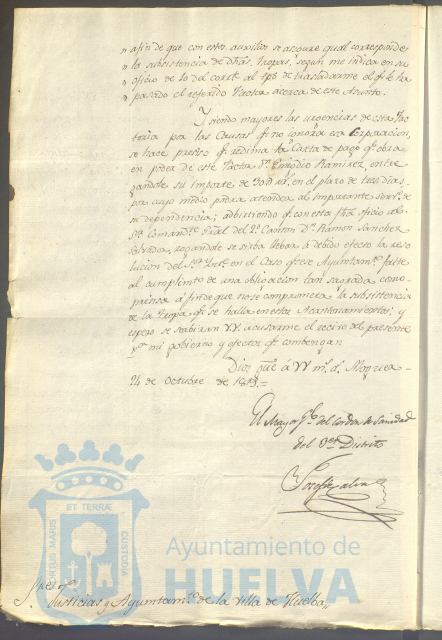 " afin de que con estos auxilios se asegure qual corresponde
" la subsistencia de dhãs. Tropas, segun me indica en su
" oficio de 10 del corrte. al tpõ de trasladarme el qe. le ha
" pasado el referido Factor acerca de este Asunto.
Y siendo mayores las urgencias de esta Fac
toria por las Causas qe. no ignora esa Corporacion,
se hace preciso qe. redima la Carta de pago qe. obra
en poder de este Factor Dn. Emigdio Ramirez, entre
gandole su importe de rr. vn. en el plazo de tres dias,
por cuyo medio podra atender al importante servo. de
su dependencia; advirtiendo qe. con esta fhã. oficio al
Sor. Comandte. Gral. del 2º Canton Dn. Ramon Sanchez
Salvador, rogandole se sirba llebar á debido efecto la reso
lucion del Sor. Yntte. en el Caso qe. ese Ayuntamto. falte
al cumplimto. de una obligacion tan sagrada como
precisa á fin de que no se comprometa la subsistencia
de la Tropa qe. se halla en estos Acantonamientos; y
espero se serbiran VV. acusarme el recibo del presente
pa. mi gobierno y efectos qe. combengan.
Dios gue. á VV ms. as. Moguer
24 de Octubre de 1819.=
El Mayor Gl. del Cordon de Sanidad
del 3er. Distrito
ORTUS MARIS
ET TERRAE
CUSTODIA
Ayuntamiento de
HUELVA
Sres.
Justicias y Ayuntamto. de la Villa de Huelba,,